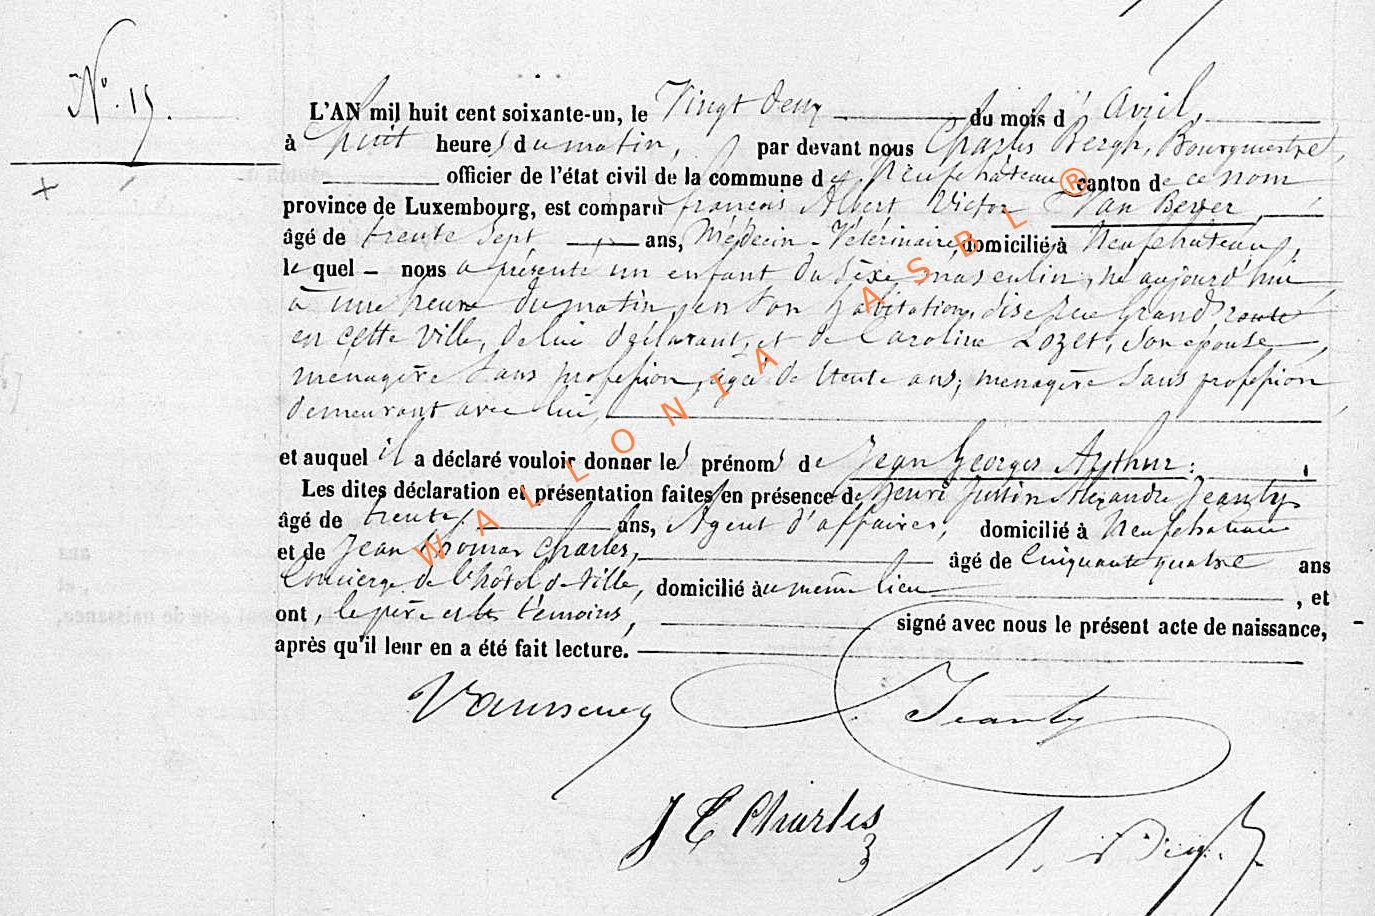 N° 15.
L'AN mil huit cent soixante-un, le Vingt deux du mois d'avril,
à huit heures du matin, par devant nous Charles Bergh, Bourgmestre,
officier de l'état civil de la commune de Neufchâteau canton de ce nom
province de Luxembourg, est comparu françois Albert Victor Van Bever
âgé de trente Sept ans, Médecin-Vétérinaire, domicilié à Neufchateau,
lequel nous a présenté un enfant du Sèxe masculin, né aujourd'hui
à une heure du matin, en Son habitation, dise rue grand route
en cette Ville, de lui déclarant, et de Caroline Lozet, Son épouse,
ménagère Sans profession, agée de trente ans, menagère Sans profession
demeurant avec lui,
et auquel il a déclaré vouloir donner les prénoms de Jean Georges Arthur.
Les dites déclaration et présentation faites en présence de Henri Justin Alexandre Jeanty
âgé de trente ans, Agent d'affaires, domicilié à Neufchateau
et de Jean thomas Charles, âgé de Cinquante quatre ans
Concierge de l'hôtel de Ville, domicilié au même lieu, et
ont, le père et les témoins, signé avec nous le présent acte de naissance,
après qu'il leur en a été fait lecture.
Jeanty
J T Charles
WALLONIA ASBL ®